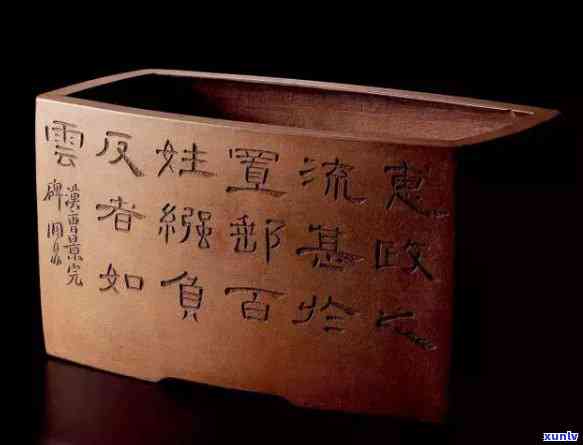 惠政之
流甚於
置郵百
姓繦負
反者如
雲
漢曹景完
碑